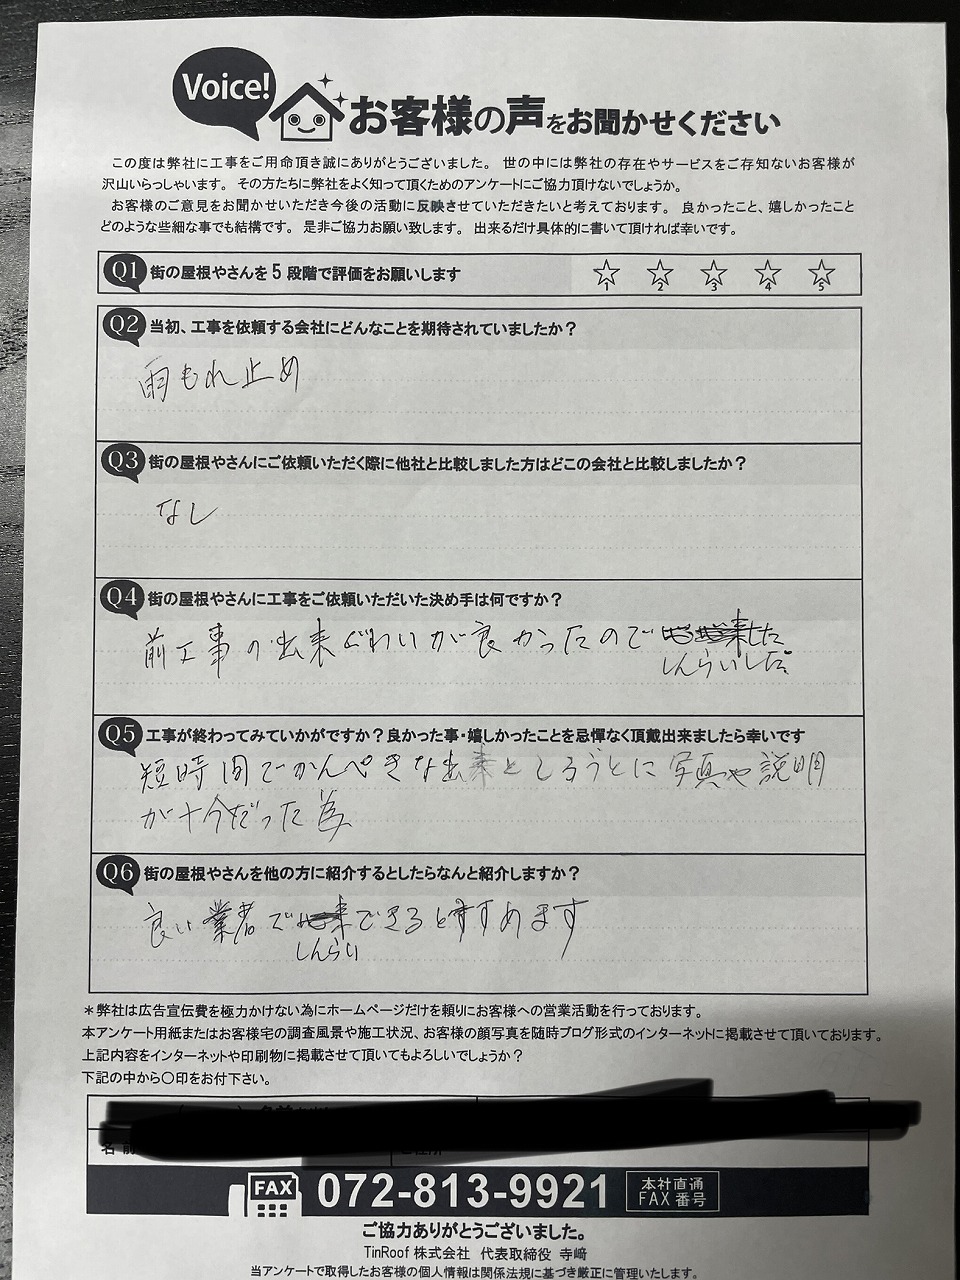 Voice!
お客様の声をお聞かせください
この度は弊社に工事をご用命頂き誠にありがとうございました。 世の中には弊社の存在やサービスをご存知ないお客様が
沢山いらっしゃいます。 その方たちに弊社をよく知って頂くためのアンケートにご協力頂けないでしょうか。
お客様のご意見をお聞かせいただき今後の活動に反映させていただきたいと考えております。 良かったこと、嬉しかったこと
どのような些細な事でも結構です。 是非ご協力お願い致します。 出来るだけ具体的に書いて頂ければ幸いです。
Q1 街の屋根やさんを5段階で評価をお願いします
1 2 3 4 5
Q2 当初、工事を依頼する会社にどんなことを期待されていましたか？
雨もれ止め
Q3 街の屋根やさんにご依頼いただく際に他社と比較しました方はどこの会社と比較しましたか？
なし
Q4 街の屋根やさんに工事をご依頼いただいた決め手は何ですか？
前工事の出来ぐわいが良かったので
しんらいした。
Q5 工事が終わってみていかがですか？良かった事・嬉しかったことを忌憚なく頂戴出来ましたら幸いです
短時間でかんぺきな出来としろうとに写真や説明
が十分だった為
Q6 街の屋根やさんを他の方に紹介するとしたらなんと紹介しますか？
良い業者で できるとすすめます
しんらい
＊弊社は広告宣伝費を極力かけない為にホームページだけを頼りにお客様への営業活動を行っております。
本アンケート用紙またはお客様宅の調査風景や施工状況、お客様の顔写真を随時ブログ形式のインターネットに掲載させて頂いております。
上記内容をインターネットや印刷物に掲載させて頂いてもよろしいでしょうか？
下記の中から〇印をお付下さい。
名前
FAX 072-813-9921 本社直通
FAX番号
ご協力ありがとうございました。
TinRoof 株式会社 代表取締役 寺﨑
当アンケートで取得したお客様の個人情報は関係法規に基づき厳正に管理いたします。